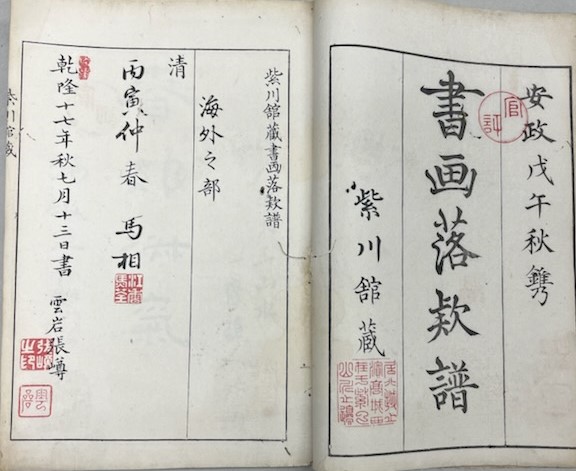 安政戊午秋鐫
官許
書画落欵譜
紫川舘藏
紫川舘藏書画落欵譜
海外之部
清
丙寅仲春 馬相
乾隆十七年秋七月十三日書 雲岩張崞
紫川舘藏